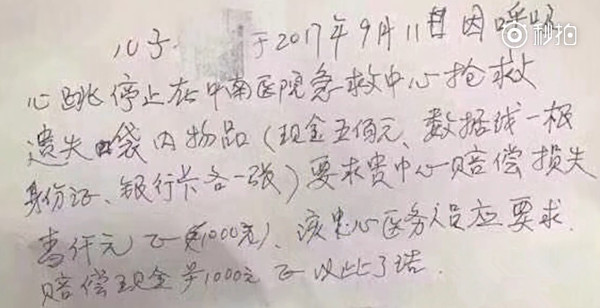 儿子 于2017年9月11日因呼吸
秒拍
心跳停止在中南医院急救中心抢救
遗失口袋内物品（现金五佰元、数据线一根
身份证、银行卡各一张）要求贵中心赔偿损失
壹仟元正（¥1000元）、该心医务人员应要求.
赔偿现金¥1000元正以此了结.